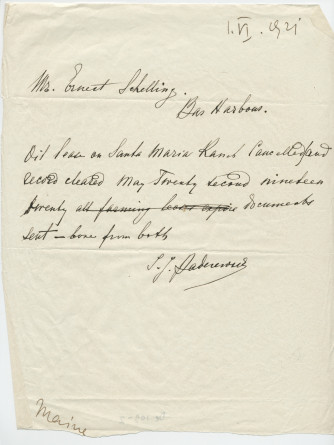 1. VI. 1921
Mr. Ernest Schelling.
Bar Harbour.
Oil lease on Santa Maria Ranch Cancelled and
record cleared May Twenty second nineteen
twenty all farming leases expire Documents
sent – love from both
I. J. Paderewski
Maine